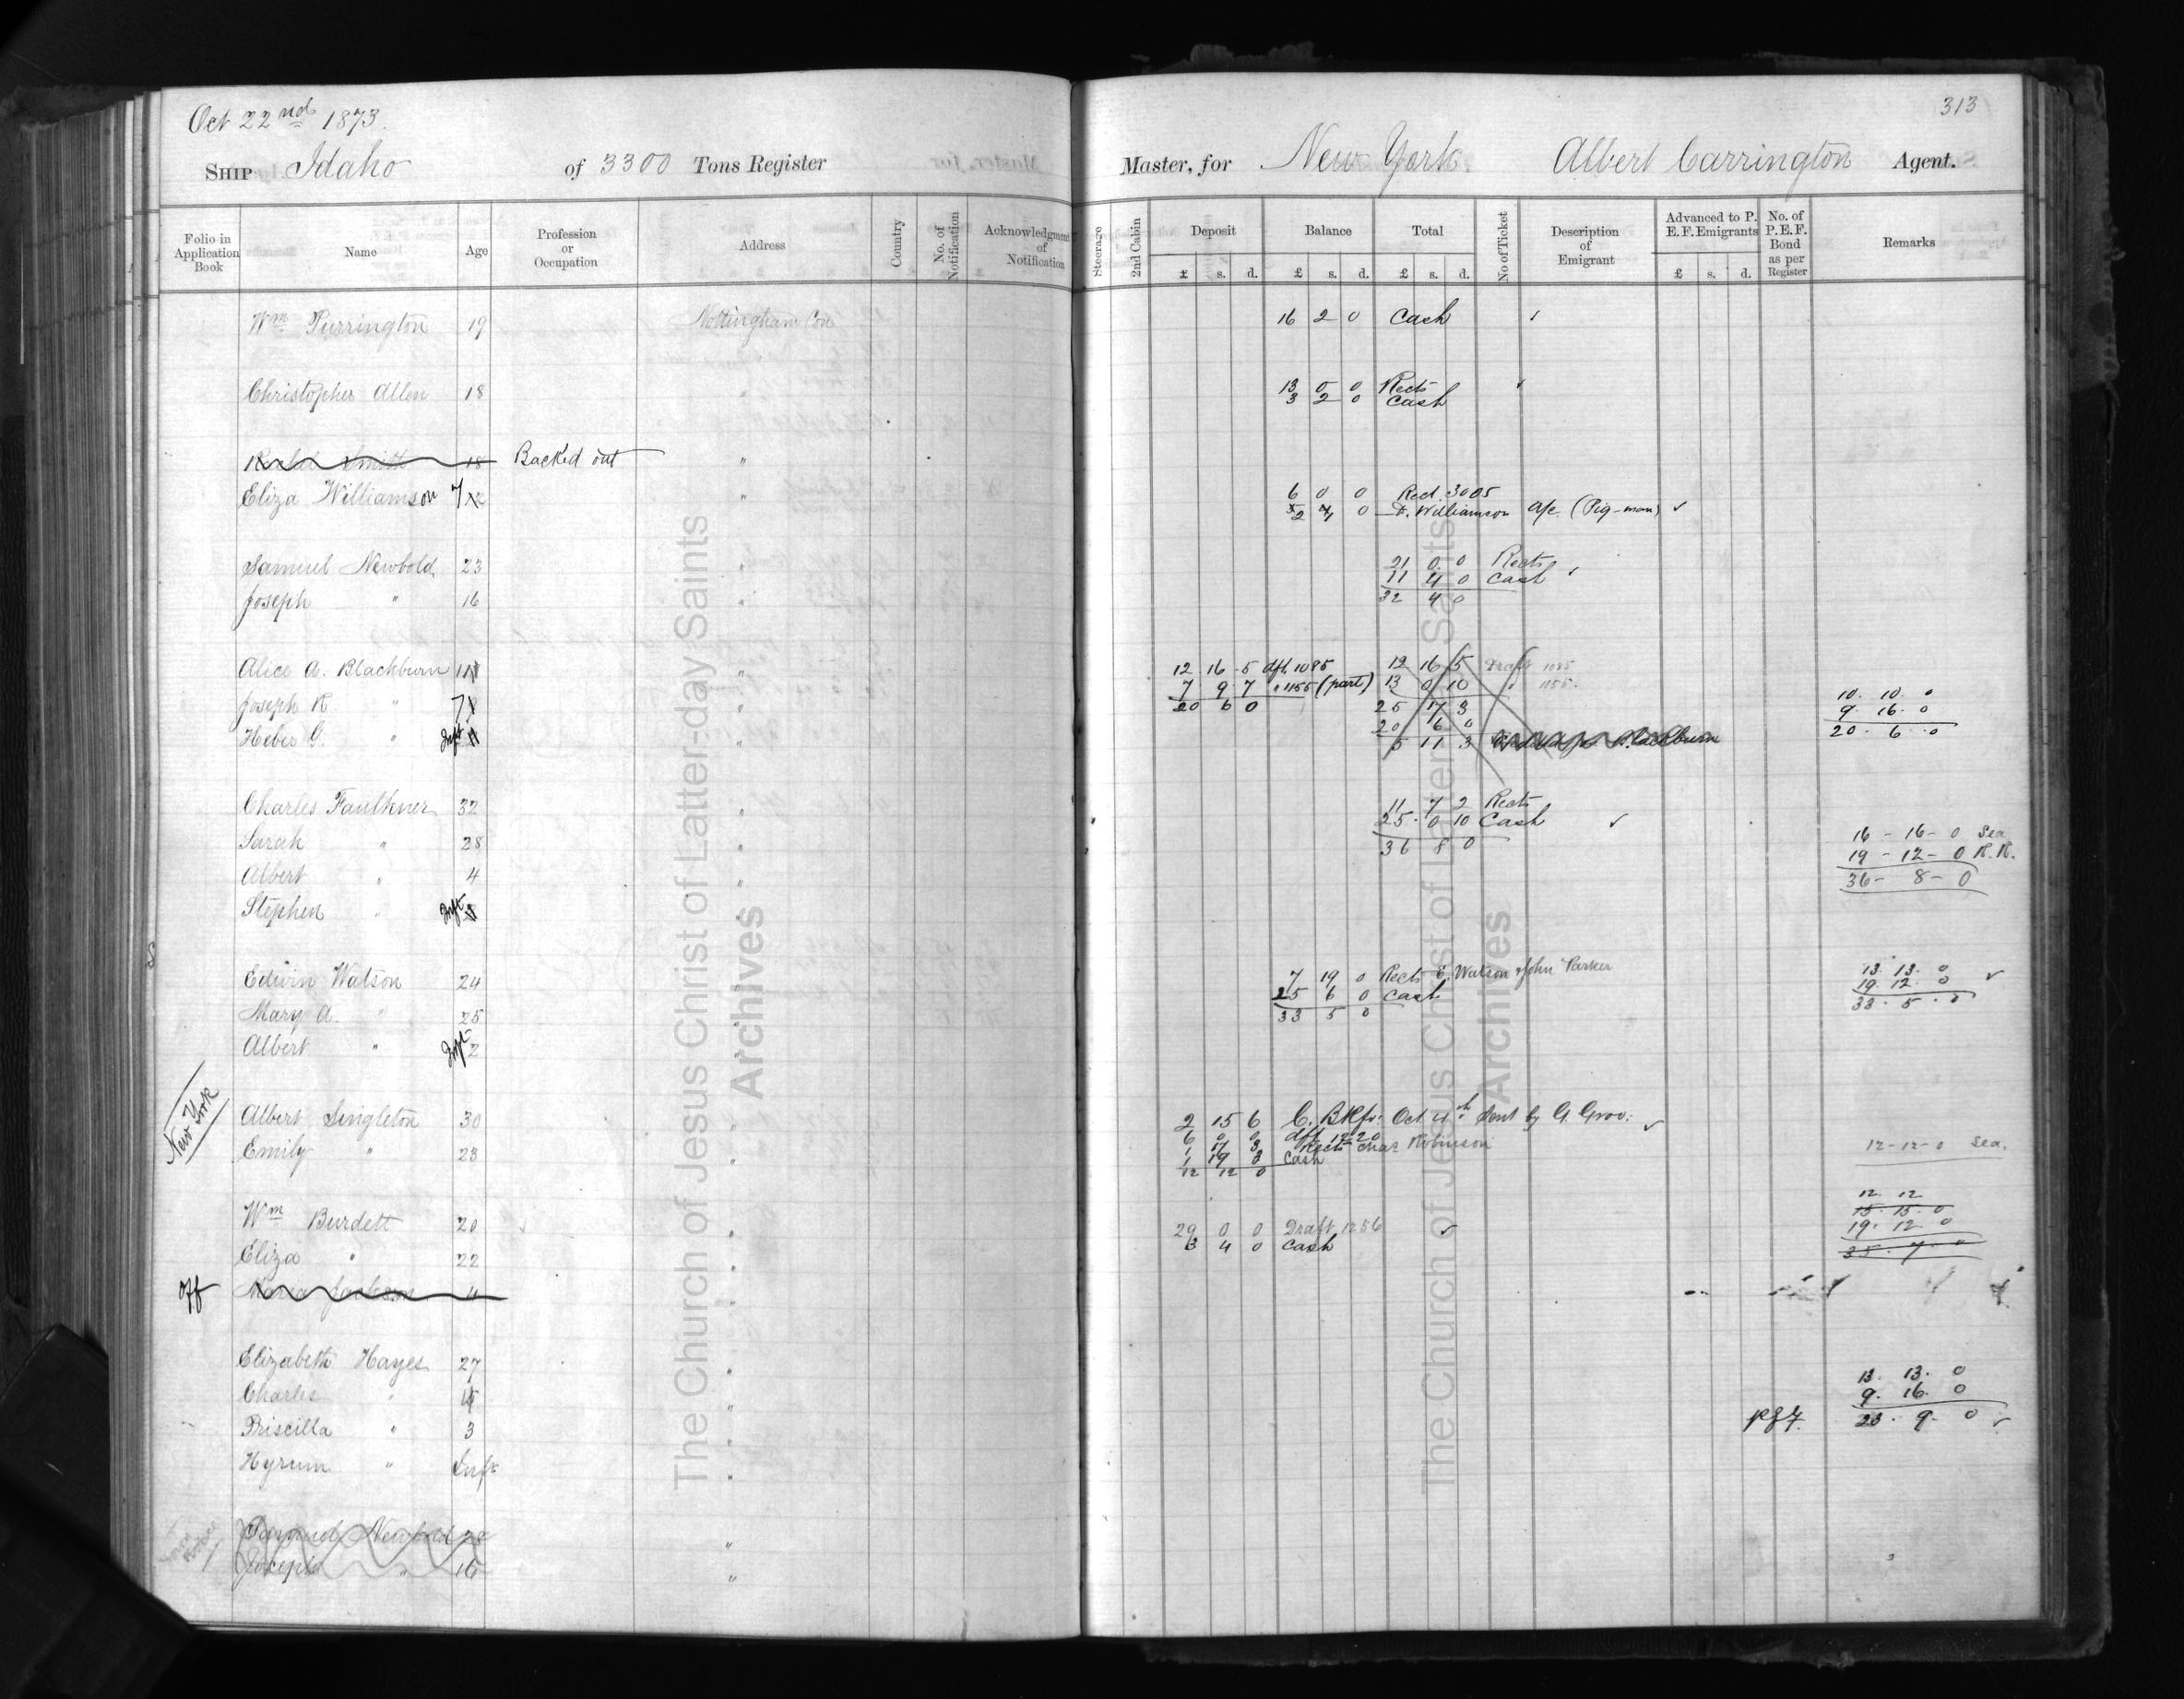 313
Oct 22nd 1873.
Ship Idaho of 3300 Tons Register Master, for New York Albert Carrington Agent.
Folio in Application Book Name Age Profession or Occupation Address Country No. of Notification Acknowledgment of Notification Steerage 2nd Cabin Deposit Balance Total No of Ticket Description of Emigrant Advanced to P. E. F. Emigrants No. of P.E.F. Bond as per Register Remarks
£ s. d. £ s. d. £ s. d. £ s. d.
Wm Purrington 19 Nottingham Con 16 2 0 Cash ✓
Christopher Allen 18 " 13 0 0 Rects ✓
3 2 0 Cash
Smith 18 Backed out "
Eliza Williamson 7 " 6 0 0 Recd. 3005
0 Williamson a/c (Pig-man) ✓
Samuel Newbold 23 " 21 0 0 Rects
11 4 0 Cash ✓
Joseph " 16 " 32 4 0
Alice A. Blackburn 11 " 12 16 5 dft. 1085 12 16 5 Draft 1085
Joseph R " 7 " 7 9 7 " 1155 (part) 13 0 10 " 1155. 10. 10. 0
20 6 0 25 17 3 9. 16. 0
Heber G. " Inft " 20 6 0 20. 6. 0
5 11 3 Blackburn
Charles Faulkner 32 " 11 7 2 Rects
25. 0 10 Cash ✓
Sarah " 28 " 36 8 0 16 - 16 - 0 Sea
19 - 12 - 0 R.R.
Albert " 4 " 36 - 8 - 0
Stephen " Inft "
Edwin Watson 24 7 19 0 Rects E. Watson & John Parker 13. 13. 0 ✓
25 6 0 Cash 19. 12. 0
Mary A. " 25 " 33 5 0 33. 5. 0
Albert " Inft 2 "
New York
Albert Singleton 30 2 15 6 C. Bkfr: Oct 4th Sent by G. Groo: ✓
6 0 0 dft 1220
Emily " 23 " 1 17 3 Rects Chas Robinson 12-12-0 Sea.
1 19 3 Cash
12 12 0
12. 12
Wm Burdett 20 " 15. 15. 0
29 0 0 Draft 1256 ✓ 19. 12. 0
Eliza " 22 " 3 4 0 Cash 35. 7. 0
Off Jackson "
Elizabeth Hayes 27 " 13. 13. 0
Charles " " 9. 16. 0
Priscilla " 3 " 23. 9. 0 ✓
Hyrum " Inft "
Samuel Newbold 23 "
Joseph " 16 "
The Church of Jesus Christ of Latter-day Saints
Archives
The Church of Jesus Christ of Latter-day Saints
Archives